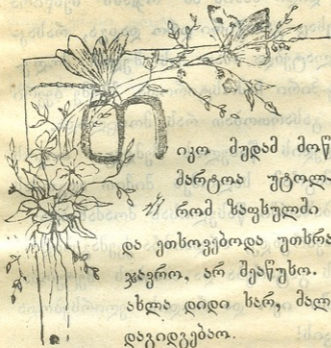 ფიკო მუდამ მოწ
მარტოა უტოლ
რომ ზაფხულში
და ეთხოვებოდა უთხრა
ჯავრო, არ შეაწუხო.
ახლა დიდი ხარ, მალ
დაგიდგებაო.